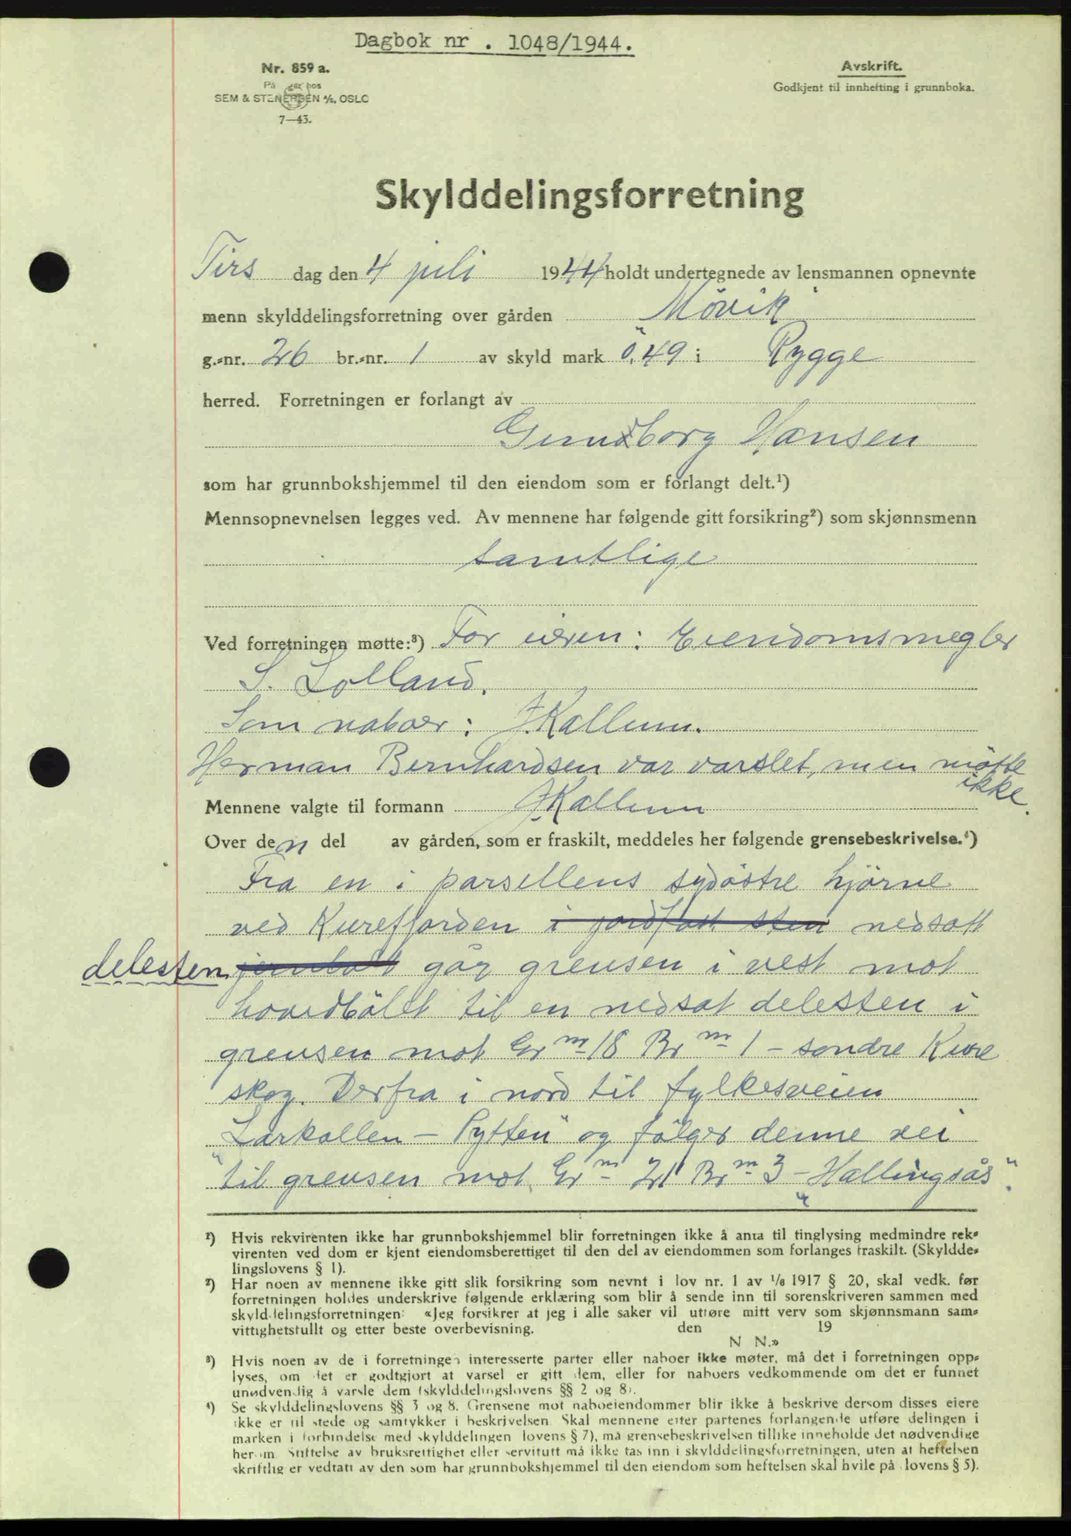 Dagbok nr . 1048/1944.
Nr. 859 a.
På lager hos
SEM & STENERSEN A/S. OSLO
7—43.
Avskrift.
Godkjent til innhefting i grunnboka.
Skylddelingsforretning
Tirs dag den 4 juli 1944 holdt undertegnede av lensmannen opnevnte
menn skylddelingsforretning over gården Mövik
g.-nr. 26 br.-nr. 1 av skyld mark 0,49 i Rygge
herred. Forretningen er forlangt av
Gunborg Hansen
som har grunnbokshjemmel til den eiendom som er forlangt delt.¹)
Mennsopnevnelsen legges ved. Av mennene har følgende gitt forsikring²) som skjønnsmenn
samtlige
Ved forretningen møtte:³) For eieren: Eiendomsmegler
S. Lolland.
Som naboer: J. Kallum.
Herman Bernhardsen var varslet, men mötte
ikke.
Mennene valgte til formann J. Kallum
Over den del av gården, som er fraskilt, meddeles her følgende grensebeskrivelse.⁴)
Fra en i parsellens sydöstre hjörne
ved Kurefjorden i jordfast sten nedsatt
delesten jernbolt går grensen i vest mot
hovedbölet til en nedsat delesten i
grensen mot Gr nr 18 Br nr 1 – söndre Kure
skog. Derfra i nord til fylkesveien
"Larkollen – Pytten" og fölger denne vei
til grensen mot Gr nr 21 Br nr 3 – "Hallingsås".
¹) Hvis rekvirenten ikke har grunnbokshjemmel blir forretningen ikke å anta til tinglysing medmindre rek-
virenten ved dom er kjent eiendomsberettiget til den del av eiendommen som forlanges fraskilt. (Skyldde-
lingslovens § 1).
²) Har noen av mennene ikke gitt slik forsikring som nevnt i lov nr. 1 av 1/6 1917 § 20, skal vedk. før
forretningen holdes underskrive følgende erklæring som blir å sende inn til sorenskriveren sammen med
skylddelingsforretningen: «Jeg forsikrer at jeg i alle saker vil utføre mitt verv som skjønnsmann sam-
vittighetsfullt og etter beste overbevisning. den 19
N N.»
³) Hvis noen av de i forretningen interesserte parter eller naboer ikke møter, må det i forretningen opp-
lyses, om det er godtgjort at varsel er gitt dem, eller for naboers vedkommende om det er funnet
unødvendig å varsle dem (skylddelingslovens §§ 2 og 8).
⁴) Se skylddelingslovens §§ 3 og 8. Grensene mot naboeiendommer blir ikke å beskrive dersom disses eiere
ikke er til stede og samtykker i beskrivelsen. Skal mennene etter partenes forlangende utføre delingen i
marken i forbindelse med skylddelingen (lovens § 7), må grensebeskrivelsen tillike inneholde det nødvendige
herom. Stiftelse av bruksrettighet eller servitutt må ikke tas inn i skylddelingsforretningen, uten at heftelsen
skriftlig er vedtatt av den som har grunnbokshjemmel til den eiendom som heftelsen skal hvile på (lovens § 5).